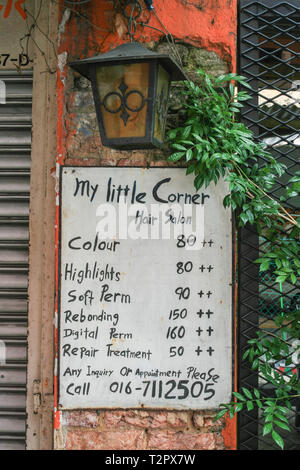 37-D
My little Corner
Hair Salon
Colour 80 ++
Highlights 80 ++
Soft Perm 90 ++
Rebonding 150 ++
Digital Perm 160 ++
Repair Treatment 50 ++
Any Inquiry Or Appointment Please
Call 016-7112505
alamy
Image ID: T2PX7W
www.alamy.com